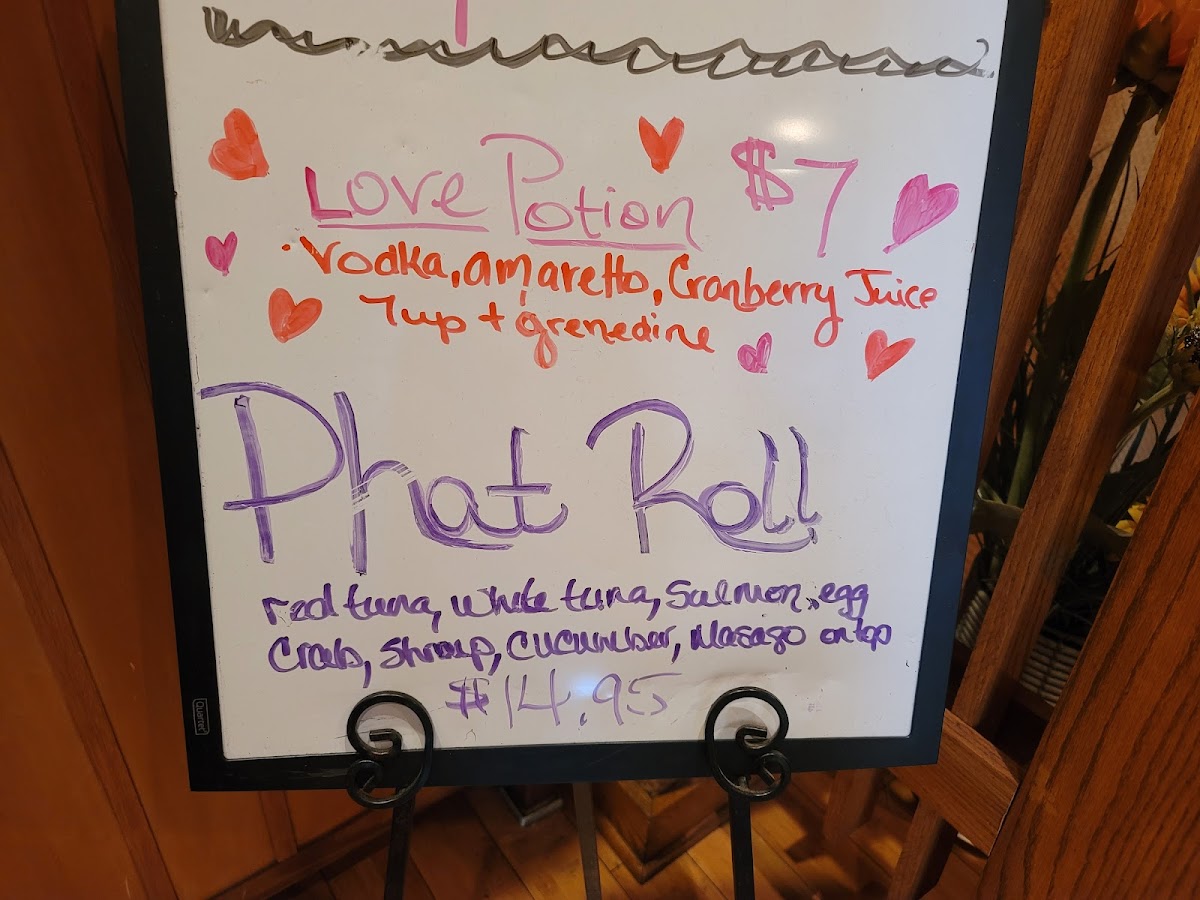 Love Potion $7
· Vodka, amaretto, Cranberry Juice
7up + grenedine
Phat Roll
red tuna, white tuna, Salmon, egg
Crab, Shrimp, cucumber, Masago on top
$14.95
Quartet